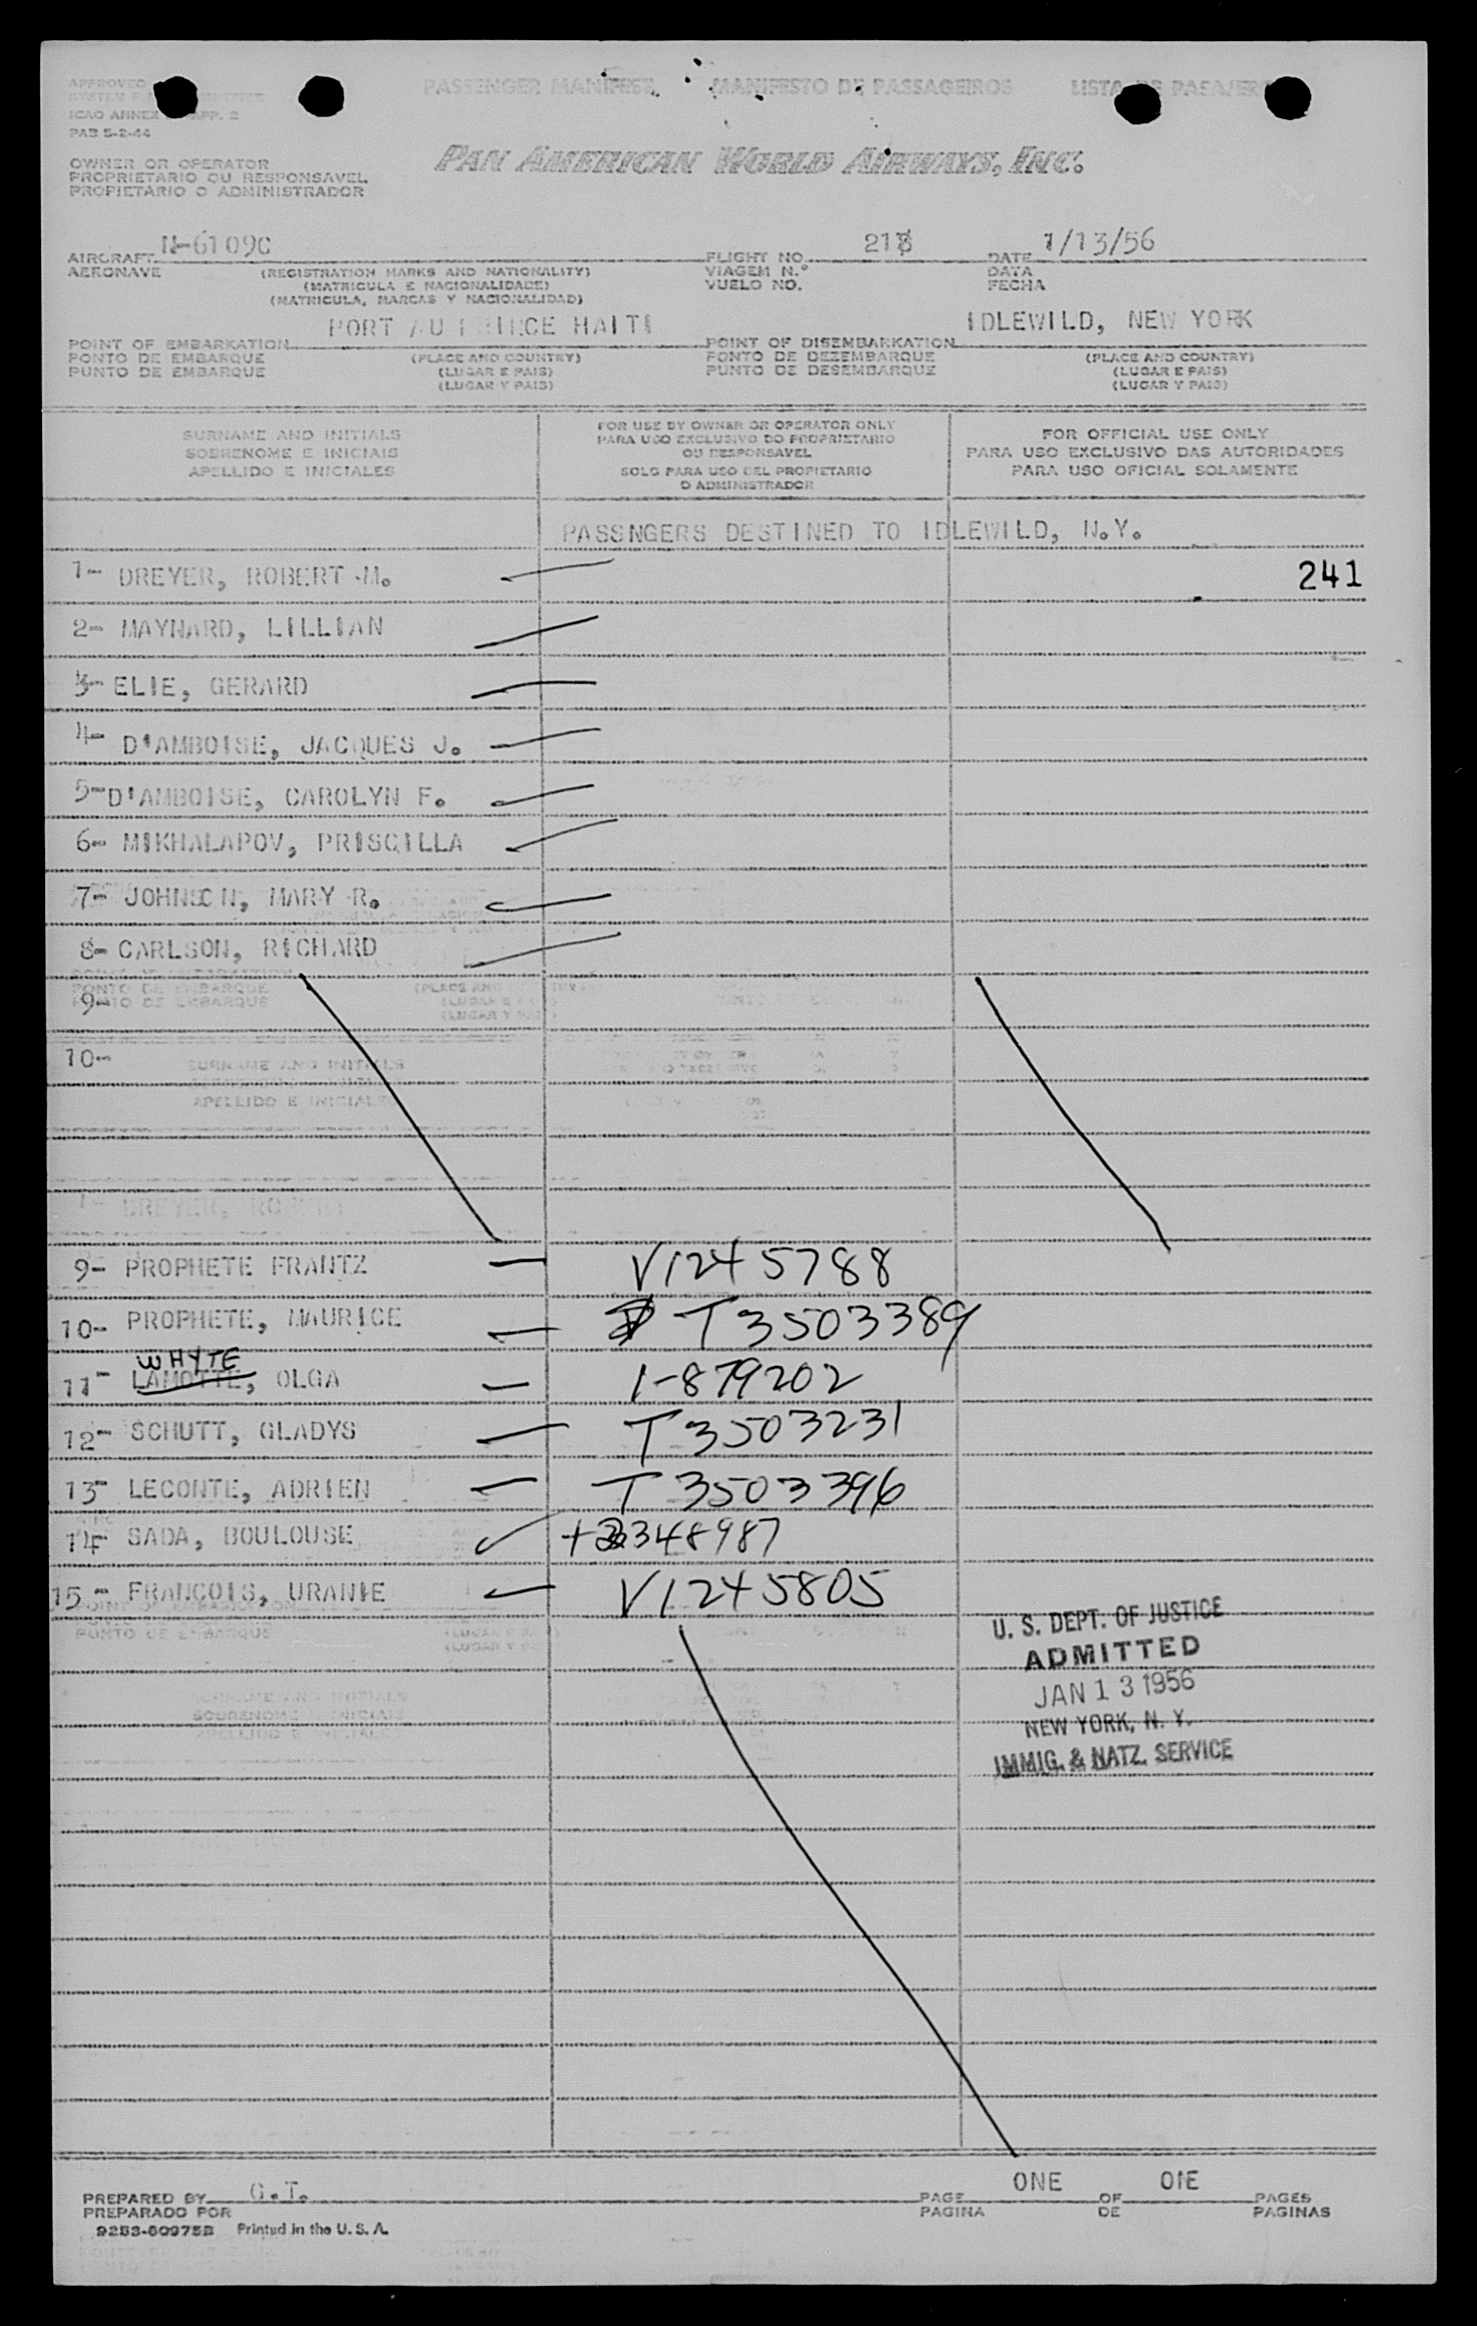 PASSENGER MANIFEST MANIFESTO DE PASSAGEIROS LISTA DE PASAJEROS
APPROVED
ICAO ANNEX APP. 2
PAB 5-2-44
PAN AMERICAN WORLD AIRWAYS, INC.
OWNER OR OPERATOR
PROPRIETARIO OU RESPONSAVEL
PROPIETARIO O ADMINISTRADOR
AIRCRAFT N-6109C FLIGHT NO. 218 DATE 1/13/56
AERONAVE (REGISTRATION MARKS AND NATIONALITY) VIAGEM N.º DATA
(MATRICULA E NACIONALIDADE) VUELO NO. FECHA
(MATRICULA, MARCAS Y NACIONALIDAD)
POINT OF EMBARKATION PORT AU PRINCE HAITI POINT OF DISEMBARKATION IDLEWILD, NEW YORK
PONTO DE EMBARQUE (PLACE AND COUNTRY) PONTO DE DEZEMBARQUE (PLACE AND COUNTRY)
PUNTO DE EMBARQUE (LUGAR E PAIS) PUNTO DE DESEMBARQUE (LUGAR E PAIS)
(LUGAR Y PAIS) (LUGAR Y PAIS)
SURNAME AND INITIALS
SOBRENOME E INICIAIS
APELLIDO E INICIALES
FOR USE BY OWNER OR OPERATOR ONLY
PARA USO EXCLUSIVO DO PROPRIETARIO
OU RESPONSAVEL
SOLO PARA USO DEL PROPIETARIO
O ADMINISTRADOR
FOR OFFICIAL USE ONLY
PARA USO EXCLUSIVO DAS AUTORIDADES
PARA USO OFICIAL SOLAMENTE
PASSNGERS DESTINED TO IDLEWILD, N.Y.
1- DREYER, ROBERT M. 241
2- MAYNARD, LILLIAN
3- ELIE, GERARD
4- D'AMBOISE, JACQUES J.
5- D'AMBOISE, CAROLYN F.
6- MIKHALAPOV, PRISCILLA
7- JOHNSON, MARY R.
8- CARLSON, RICHARD
9-
10-
9- PROPHETE FRANTZ V1245788
10- PROPHETE, MAURICE T3503389
WHYTE
11- LAMOTTE, OLGA 1-879202
12- SCHUTT, GLADYS T3503231
13- LECONTE, ADRIEN T3503396
14 SADA, BOULOUSE 348987
15- FRANCOIS, URANIE V1245805
U. S. DEPT. OF JUSTICE
ADMITTED
JAN 13 1956
NEW YORK, N. Y.
IMMIG. & NATZ. SERVICE
PREPARED BY G.T. PAGE ONE OF ONE PAGES
PREPARADO POR PAGINA DE PAGINAS
9253-60975B Printed in the U. S. A.